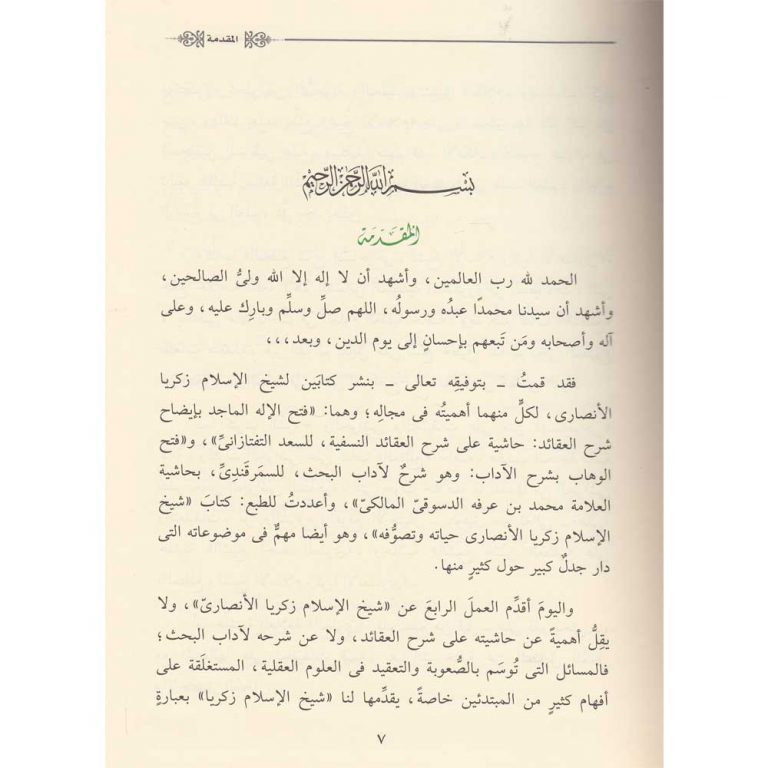 المقدمة
بسم الله الرحمن الرحيم
المقدمة
الحمد لله رب العالمين، وأشهد أن لا إله إلا الله ولىُّ الصالحين،
وأشهد أن سيدنا محمدًا عبدُه ورسولُه، اللهم صلِّ وسلِّم وبارِك عليه، وعلى
آله وأصحابه ومَن تَبعهم بإحسانٍ إلى يوم الدين، وبعد،،،
فقد قمتُ ـ بتوفيقِه تعالى ـ بنشر كتابَين لشيخ الإسلام زكريا
الأنصارى، لكلٍّ منهما أهميتُه فى مجالِه؛ وهما: «فتح الإله الماجد بإيضاح
شرح العقائد: حاشية على شرح العقائد النسفية، للسعد التفتازانىِّ»، و«فتح
الوهاب بشرح الآداب: وهو شرحٌ لآداب البحث، للسمَرقَندِىِّ، بحاشية
العلامة محمد بن عرفه الدسوقىِّ المالكىِّ»، وأعددتُ للطبع: كتابَ «شيخ
الإسلام زكريا الأنصارى حياته وتصوُّفه»، وهو أيضا مهمٌّ فى موضوعاته التى
دار جدلٌ كبير حول كثيرٍ منها.
واليومَ أقدِّم العملَ الرابعَ عن «شيخ الإسلام زكريا الأنصارىّ»، ولا
يقِلُّ أهميةً عن حاشيته على شرح العقائد، ولا عن شرحه لآداب البحث؛
فالمسائل التى تُوسَم بالصُّعوبة والتعقيد فى العلوم العقلية، المستغلَقة على
أفهام كثيرٍ من المبتدئين خاصةً، يقدِّمها لنا «شيخ الإسلام زكريا» بعبارةٍ
٧